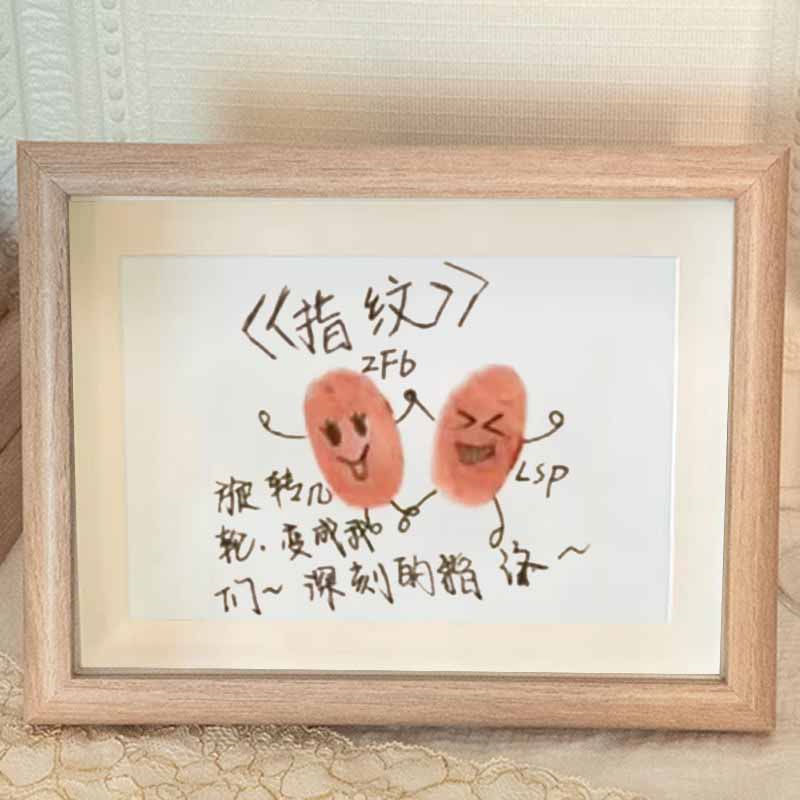 《指纹》
ZFb
LSP
旋转几
轮.变成我
们~深刻的指
~